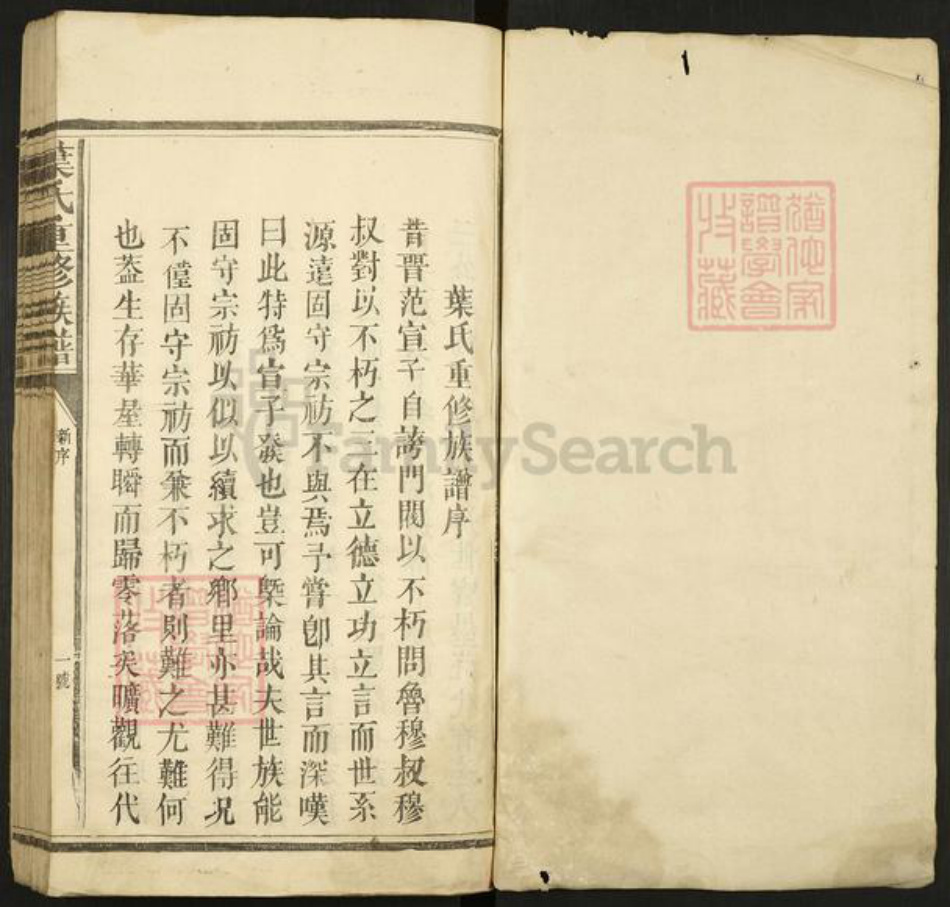 猶他家
譜學會
收藏
葉氏重修族譜序
昔晋范宣子自誇門閥以不朽問魯穆叔穆
叔對以不朽之三在立德立功立言而世系
源遠固守宗祊不與焉予嘗卽其言而深嘆
曰此特爲宣子發也豈可槩論哉夫世族能
固守宗祊以似以續求之鄉里亦甚難得况
不僅固守宗祊而兼不朽者則難之尤難何
也葢生存華屋轉瞬而歸零落矣曠觀往代
葉氏重修族譜
新序
一號
猶他家
譜學會
收藏
FamilySearch